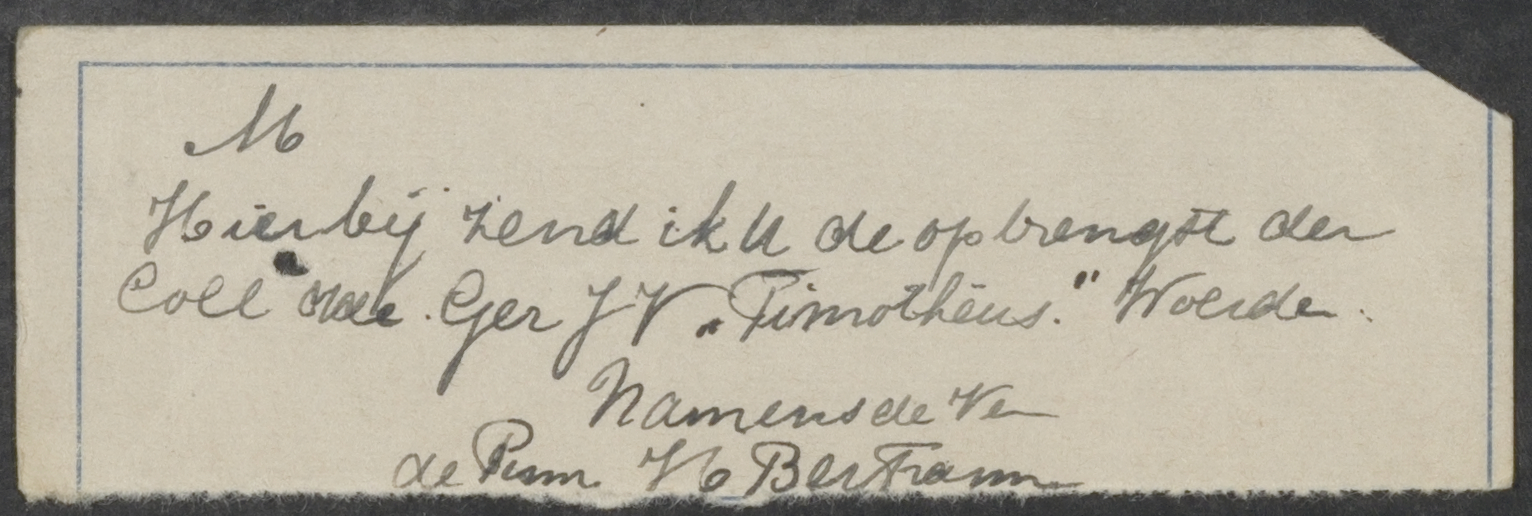 M
Hierbij zend ik U de opbrengst der
Coll Ger J V „Timotheüs." Woerde.
Namens de Ver
de Penn. H Bertram